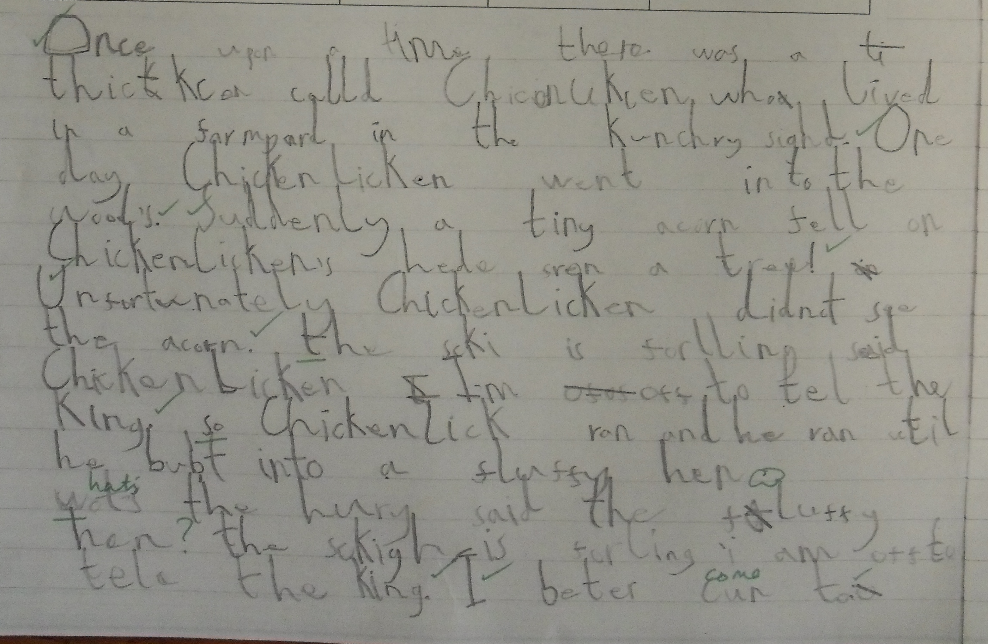 Once upon a time there was a
thickken calld Chiconlikcen who lived
in a farmpard in the Kunchry sight. One
day Chicken Licken went in to the
wood's. Suddenly, a tiny acorn fell on
ChickenLicken's hede from a tree!
Unfortunately ChickenLicken didnt see
the acorn. the scki is farlling said
ChickenLicken I I'm off to tel the
King. so ChickenLick ran and he ran util
he bubt into a fluffy hen
whats the hurry said the fluffy
hen? the sckigh is farling i am off to
tele the king. I beter come to